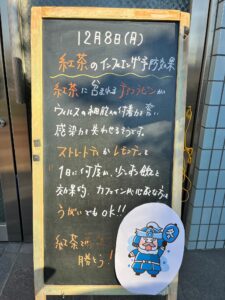 12月8日(月)
紅茶のインフルエンザ予防効果
紅茶に含まれるテアフラビンが
ウィルスの細胞への付着を
感染力を失わせるそうです。
ストレートティかレモンティを
1日に何度か、少しずつ飲むと
効果的。カフェインが心配な方は
うがいでもOK!!
紅茶で
勝とう!